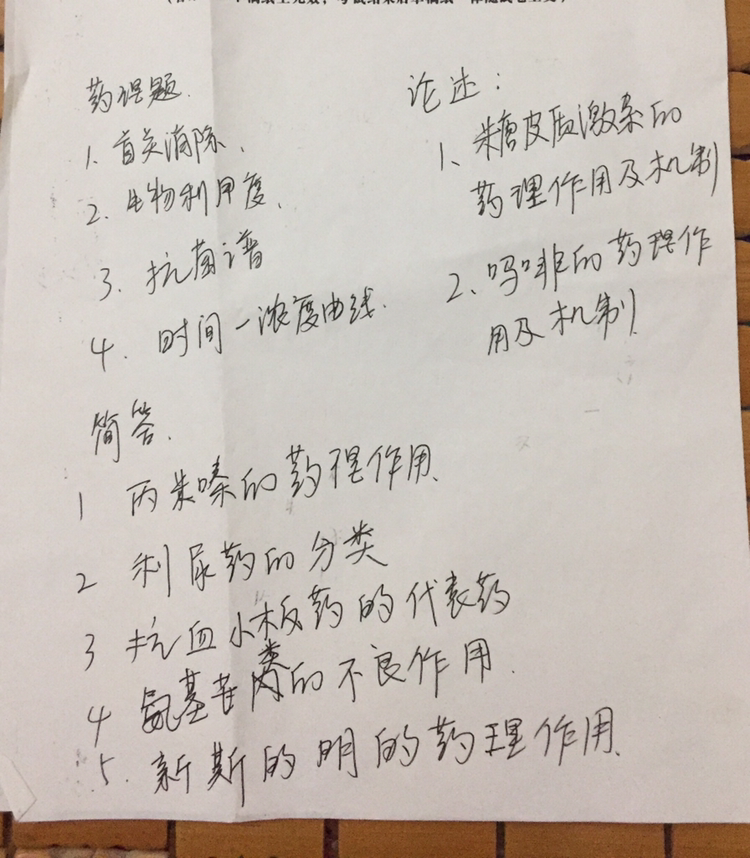 药理题.
1、首关消除、
2、生物利用度、
3、抗菌谱
4、时间一浓度曲线.
简答.
1 丙米嗪的药理作用、
2 利尿药的分类
3 抗血小板药的代表药
4 氨基苷类的不良作用.
5、新斯的明的药理作用、
论述：
1、糖皮质激素的
药理作用及机制
2、吗啡的药理作
用及机制